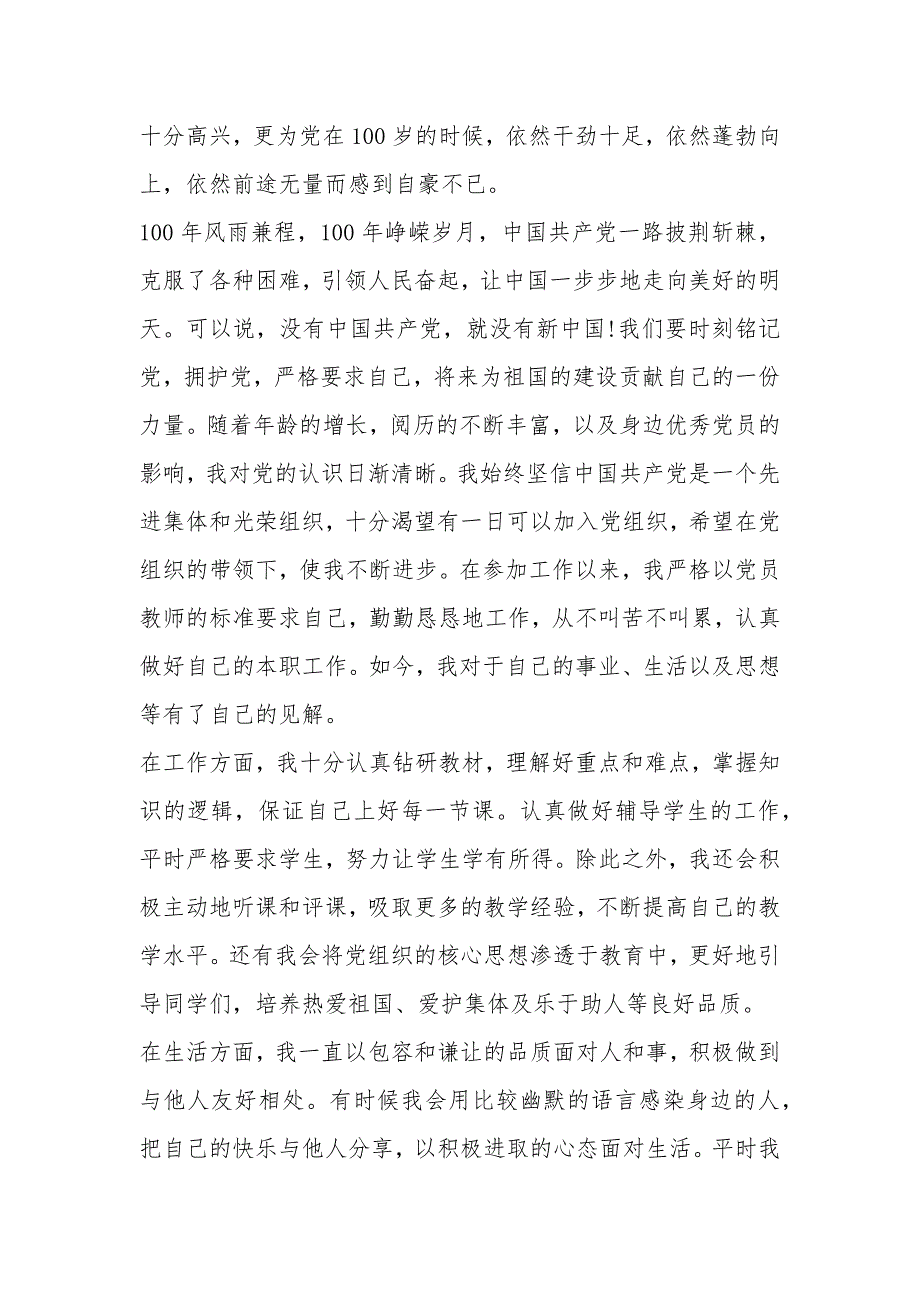 十分高兴，更为党在 100 岁的时候，依然干劲十足，依然蓬勃向
上，依然前途无量而感到自豪不已。
100 年风雨兼程，100 年峥嵘岁月，中国共产党一路披荆斩棘，
克服了各种困难，引领人民奋起，让中国一步步地走向美好的明
天。可以说，没有中国共产党，就没有新中国!我们要时刻铭记
党，拥护党，严格要求自己，将来为祖国的建设贡献自己的一份
力量。随着年龄的增长，阅历的不断丰富，以及身边优秀党员的
影响，我对党的认识日渐清晰。我始终坚信中国共产党是一个先
进集体和光荣组织，十分渴望有一日可以加入党组织，希望在党
组织的带领下，使我不断进步。在参加工作以来，我严格以党员
教师的标准要求自己，勤勤恳恳地工作，从不叫苦不叫累，认真
做好自己的本职工作。如今，我对于自己的事业、生活以及思想
等有了自己的见解。
在工作方面，我十分认真钻研教材，理解好重点和难点，掌握知
识的逻辑，保证自己上好每一节课。认真做好辅导学生的工作，
平时严格要求学生，努力让学生学有所得。除此之外，我还会积
极主动地听课和评课，吸取更多的教学经验，不断提高自己的教
学水平。还有我会将党组织的核心思想渗透于教育中，更好地引
导同学们，培养热爱祖国、爱护集体及乐于助人等良好品质。
在生活方面，我一直以包容和谦让的品质面对人和事，积极做到
与他人友好相处。有时候我会用比较幽默的语言感染身边的人，
把自己的快乐与他人分享，以积极进取的心态面对生活。平时我